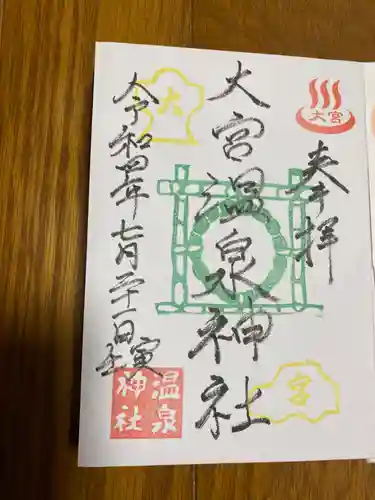 奉拝
大宮
大宮温泉神社
宮
大
令和四年七月二十一日
壬寅
温泉
神社